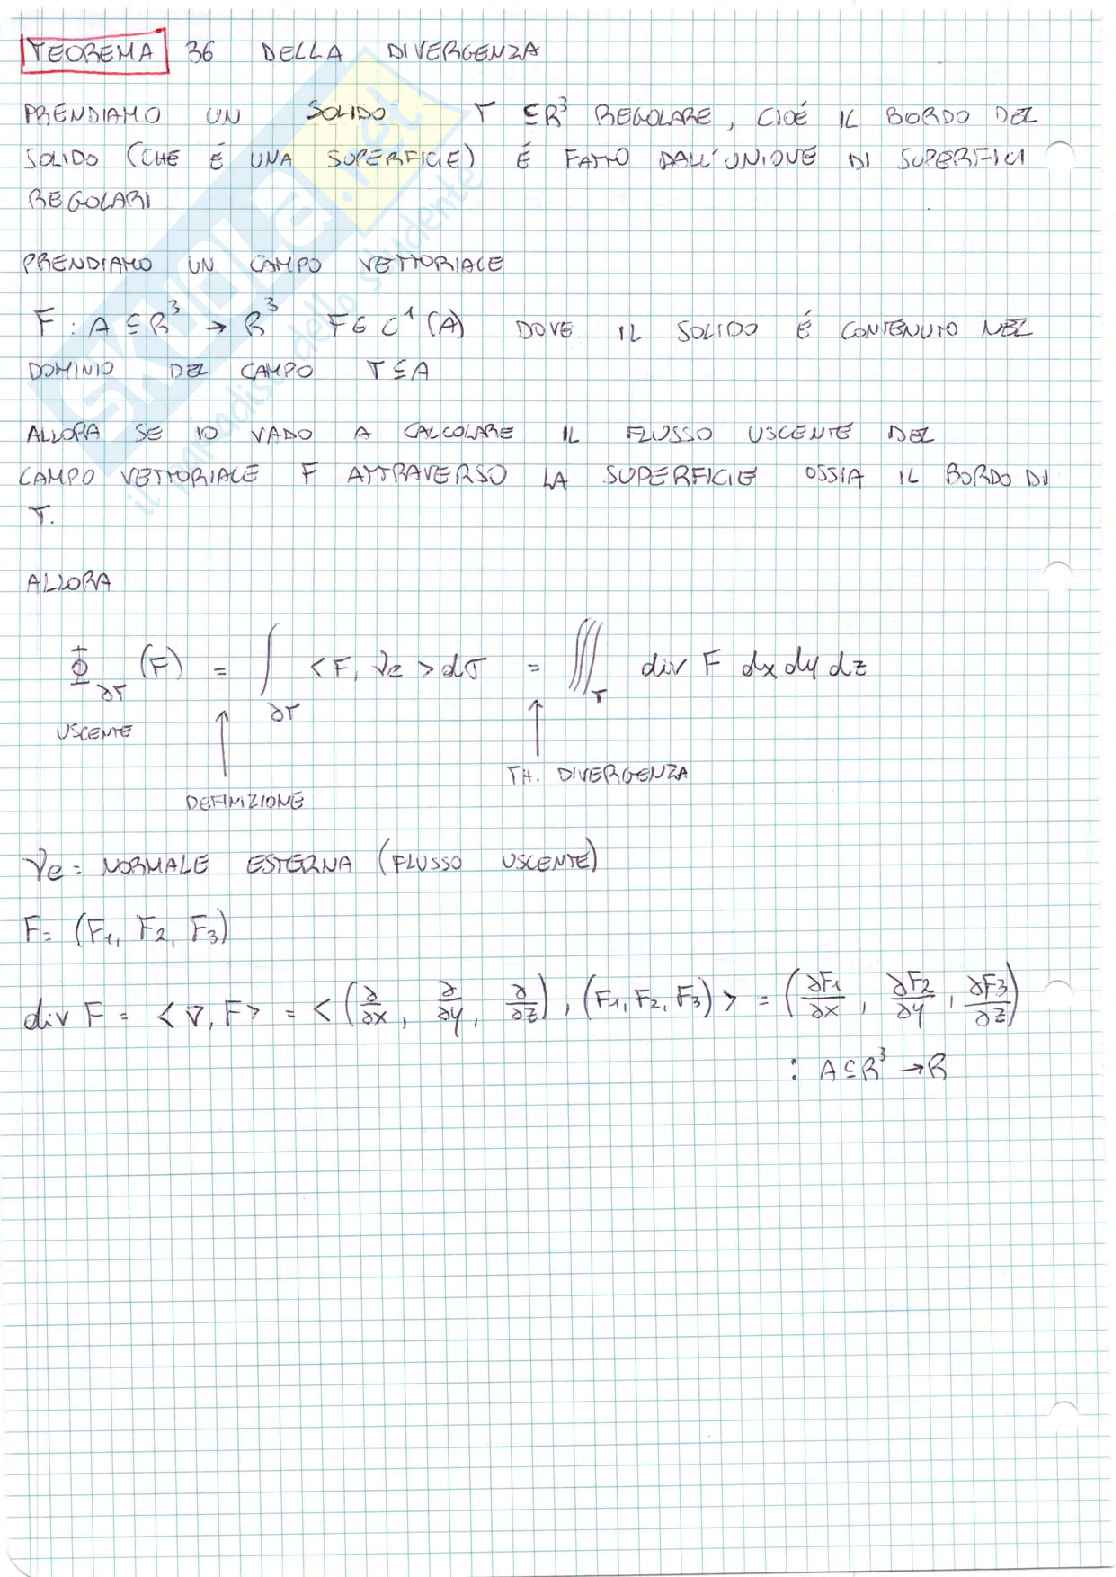 TEOREMA 36 DELLA DIVERGENZA
PRENDIAMO UN SOLIDO T ⊆ R³ REGOLARE, CIOÉ IL BORDO DEL
SOLIDO (CHE É UNA SUPERFICIE) É FATTO DALL'UNIONE DI SUPERFICI
REGOLARI
PRENDIAMO UN CAMPO VETTORIALE
F : A ⊆ R³ → R³ F ∈ C¹(A) DOVE IL SOLIDO É CONTENUTO NEL
DOMINIO DEL CAMPO T ⊆ A
ALLORA SE IO VADO A CALCOLARE IL FLUSSO USCENTE DEL
CAMPO VETTORIALE F ATTRAVERSO LA SUPERFICIE OSSIA IL BORDO DI
T.
ALLORA
Φ_∂T (F) = ∫_∂T < F, νe > dσ = ∭_T div F dx dy dz
USCENTE
TH. DIVERGENZA
DEFINIZIONE
νe = NORMALE ESTERNA (FLUSSO USCENTE)
F = (F₁, F₂, F₃)
div F = < ∇, F > = < (∂/∂x, ∂/∂y, ∂/∂z), (F₁, F₂, F₃) > = (∂F₁/∂x, ∂F₂/∂y, ∂F₃/∂z)
: A ⊆ R³ → R
SKUOLA.net
il paradiso dello studente